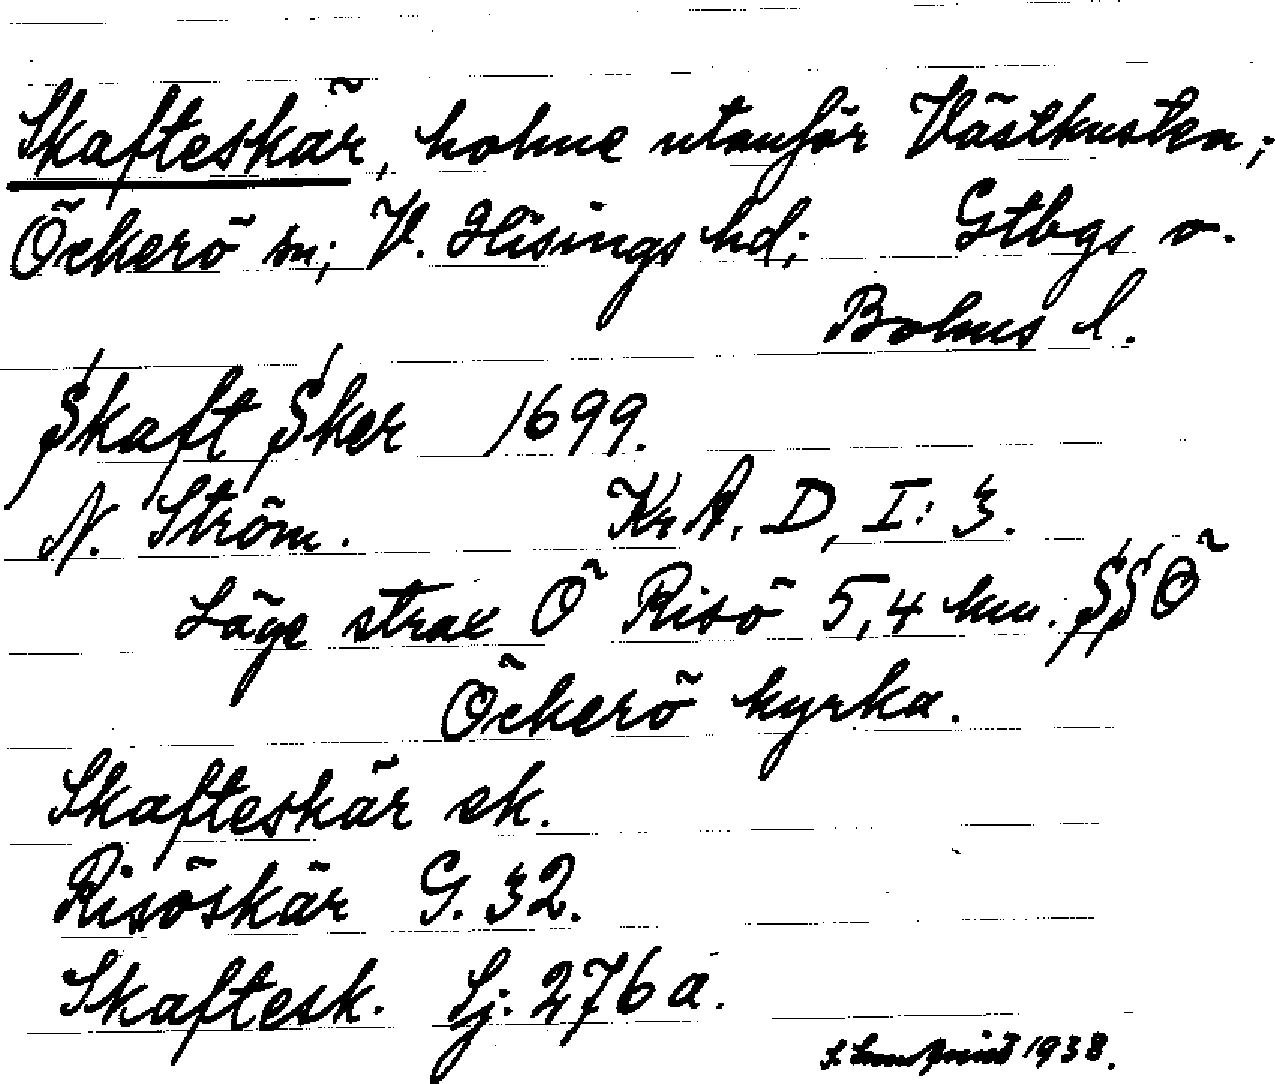 Skafteskär, holme utanför Västkusten;
Öckerö sn; V. Hisings hd; Gtbgs o.
Bohus l.
Skaft Sker 1699.
N. Ström. Kr.A. D, I: 3.
Läge strax Ö Risö 5,4 km. SSÖ
Öckerö kyrka.
Skafteskär ek.
Risöskär G. 32.
Skaftesk. Sj. 276 a.
1938.